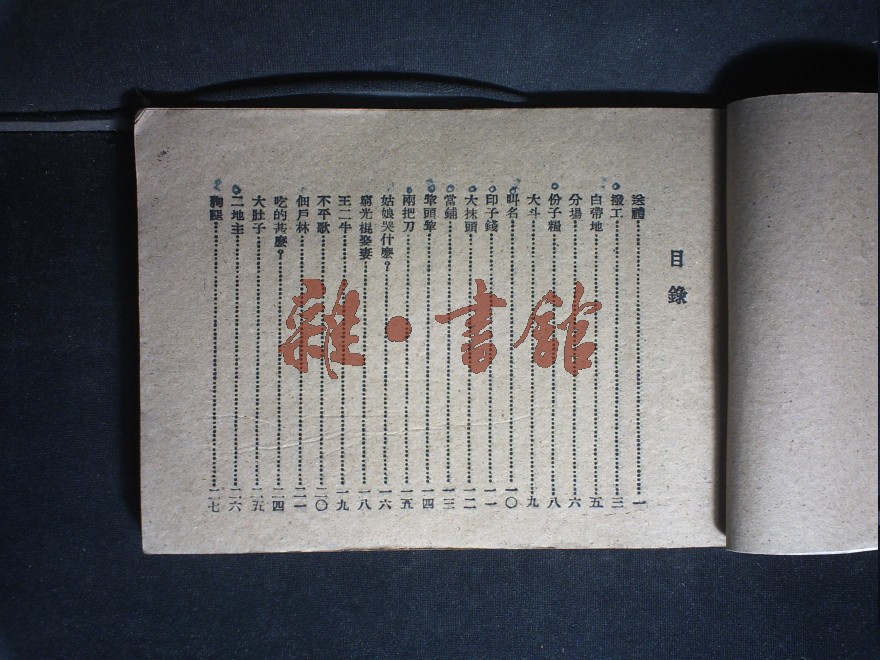 目錄
送禮 一
撥工 三
白帶地 五
分場 六
份子糧 八
大斗 九
叫名 一〇
印子錢 一一
大抹頭 一二
當鋪 一三
犂頭犂 一四
兩把刀 一五
姑娘哭什麽？ 一六
窮光棍娶妻 一八
王二牛 一九
不平歌 二〇
佃戶林 二一
吃的甚麽？ 二四
大肚子 二五
二地主 二六
狗 二七
雜·書館